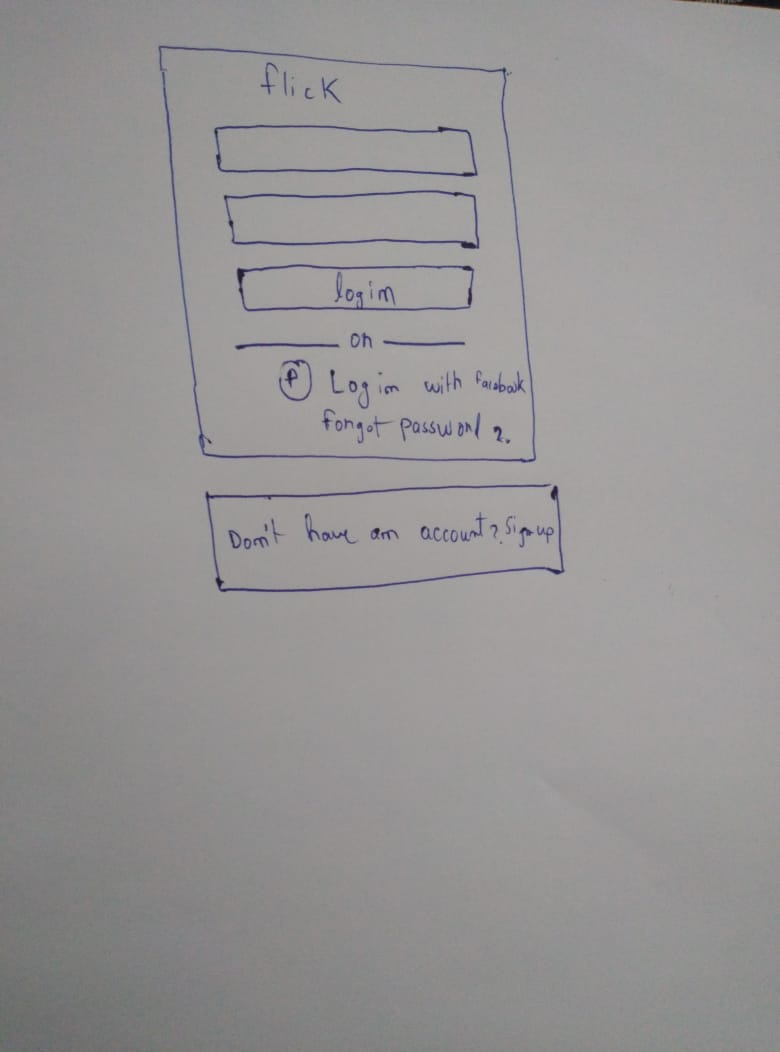 flick
login
or
f Login with facebook
forgot password ?
Don't have an account? Sign up